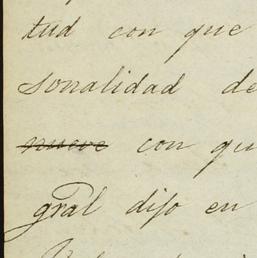 tud con que
sonalidad de
nueve con qu
gral dijo en